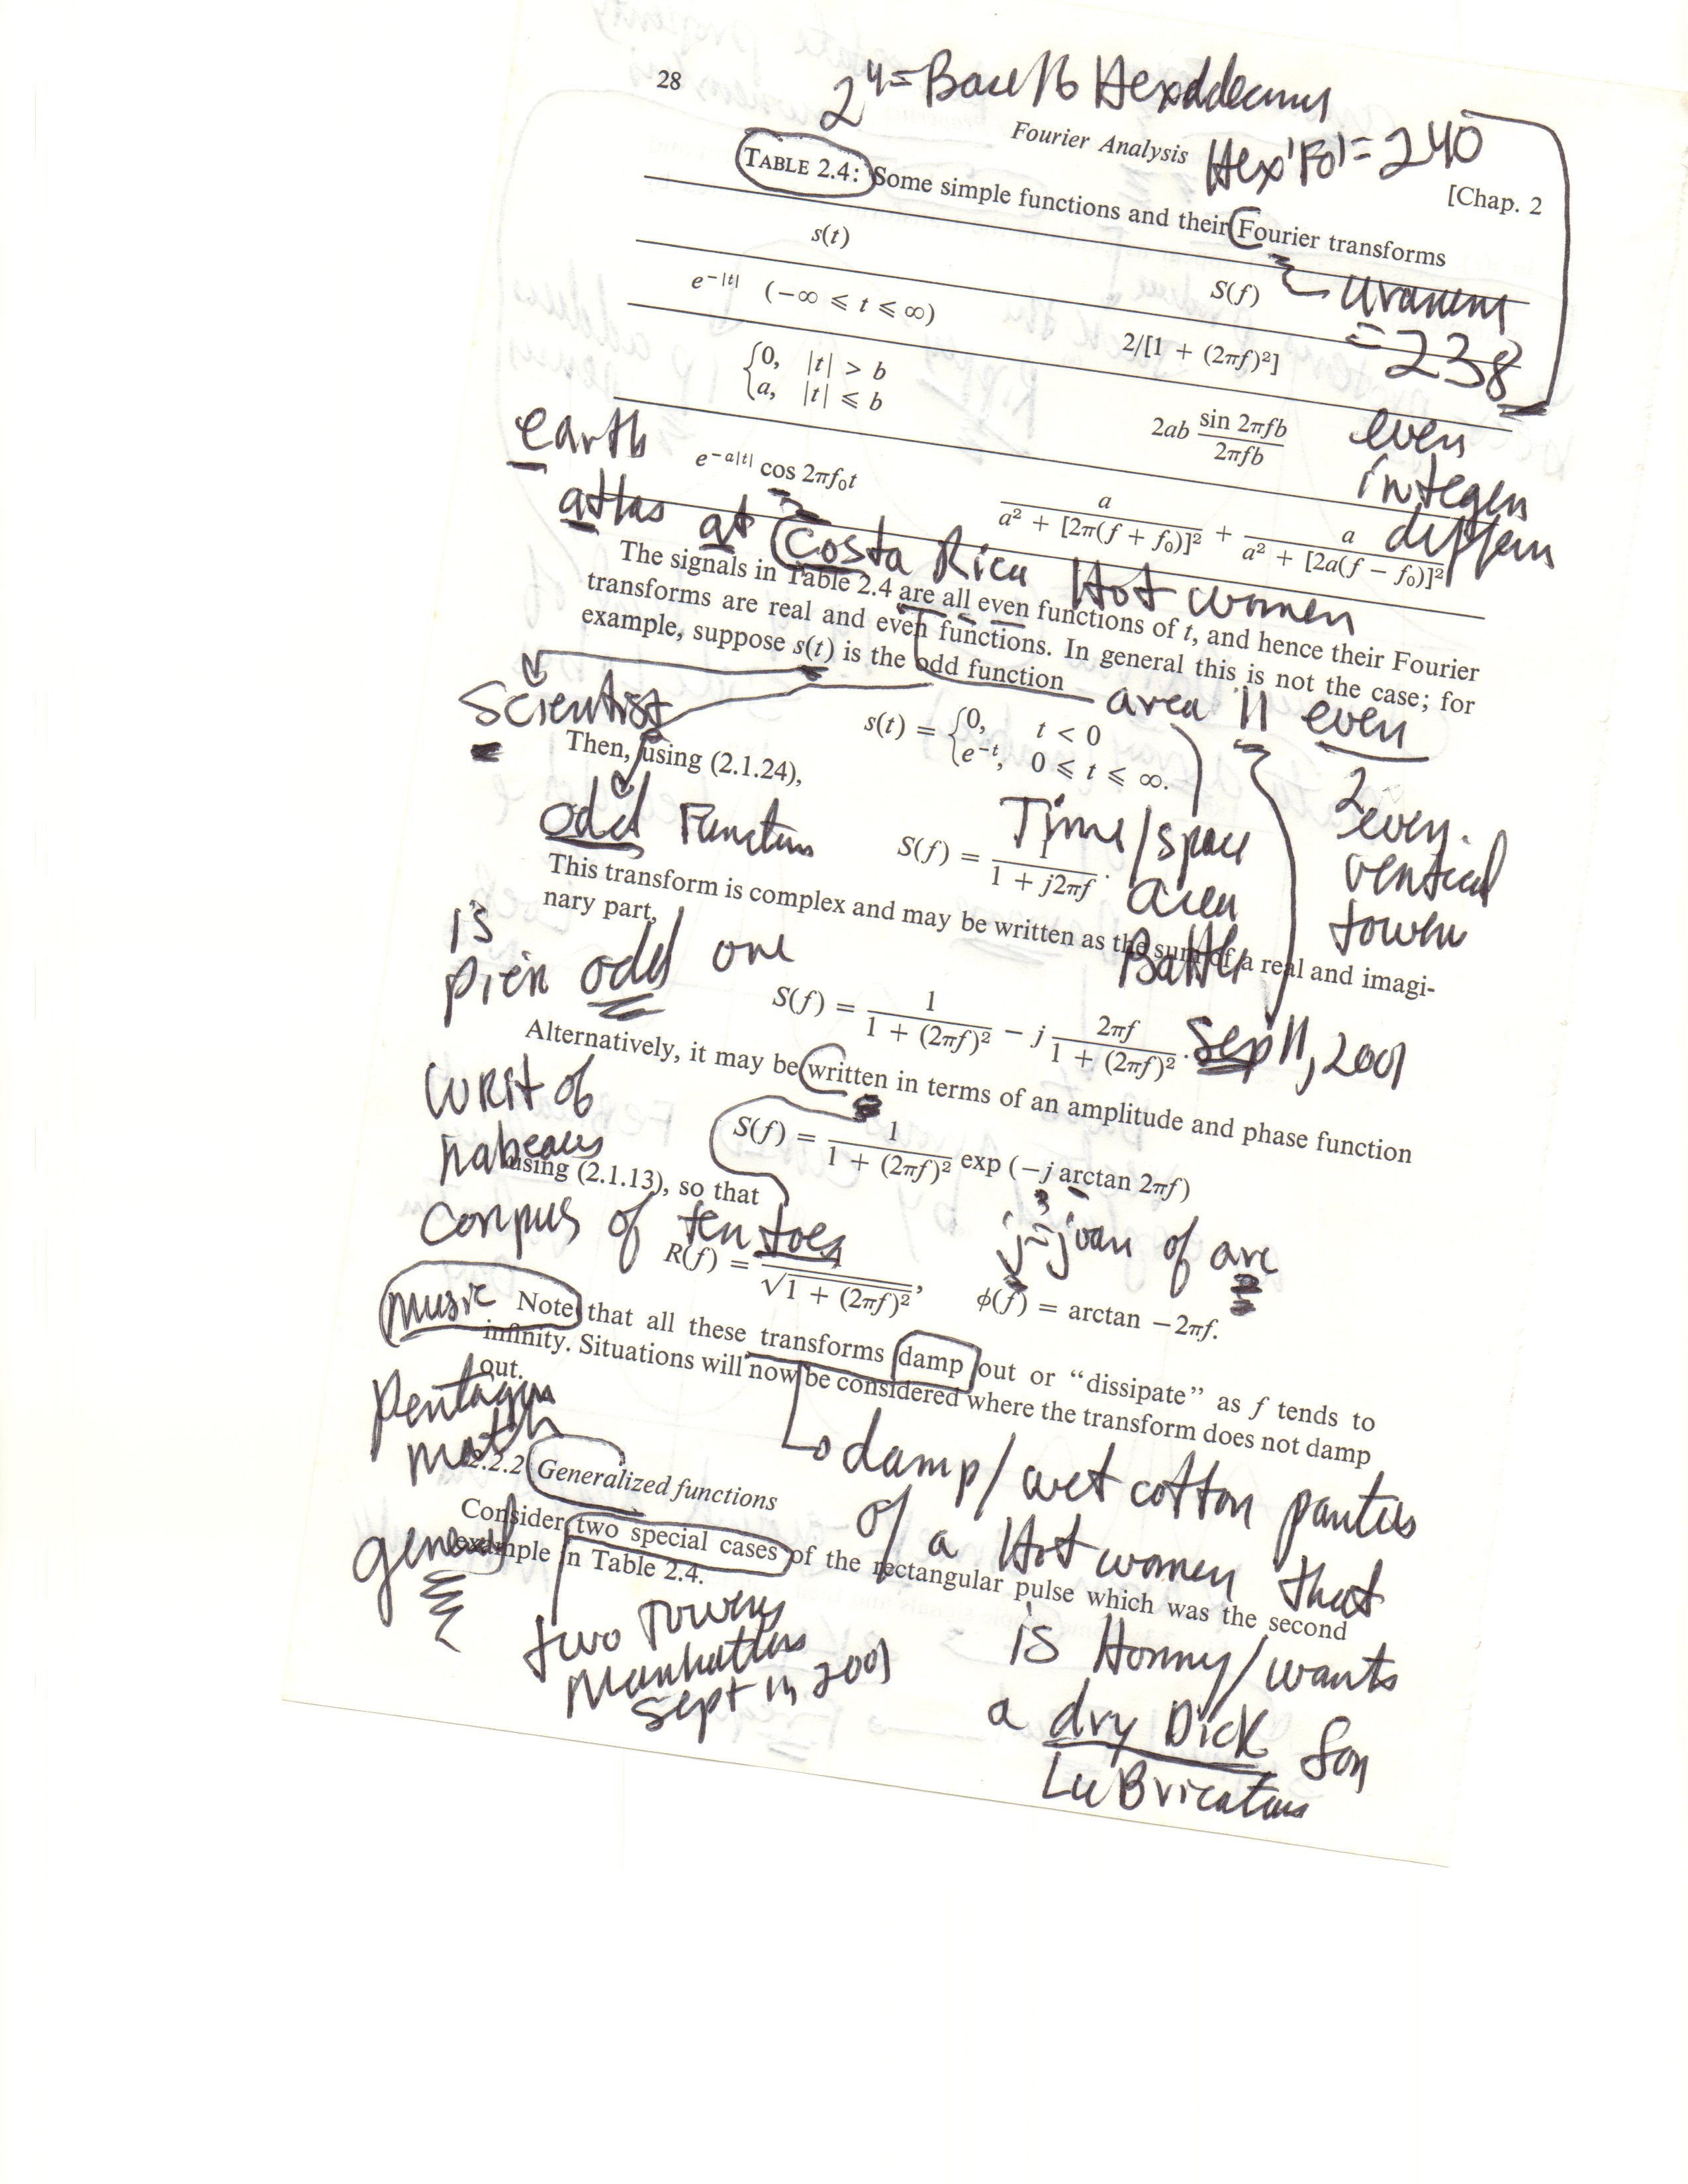 28
2⁴ = Base 16
Fourier Analysis
Hex 'F0' = 240
[Chap. 2
TABLE 2.4: Some simple functions and their Fourier transforms
s(t)
S(f)
= 238
e^−|t| (−∞ ⩽ t ⩽ ∞)
2/[1 + (2πf)²]
{0, |t| > b
a, |t| ⩽ b
2ab sin 2πfb / 2πfb
even
integer
earth
e^−a|t| cos 2πf₀t
a / a² + [2π(f + f₀)]² + a / a² + [2a(f − f₀)]²
atlas at Costa Rica Hot women
The signals in Table 2.4 are all even functions of t, and hence their Fourier
transforms are real and even functions. In general this is not the case; for
example, suppose s(t) is the odd function
area 11 even
Scientist
s(t) = {0, t < 0
e^−t, 0 ⩽ t ⩽ ∞.
Then, using (2.1.24),
odd
Time/space
area
Battle
2
vertical
S(f) = 1 / 1 + j2πf.
This transform is complex and may be written as the sum of a real and imagi-
nary part,
is
odd one
S(f) = 1 / 1 + (2πf)² − j 2πf / 1 + (2πf)².
Sep 11, 2001
Alternatively, it may be written in terms of an amplitude and phase function
writ of
S(f) = 1 / 1 + (2πf)² exp (−j arctan 2πf)
using (2.1.13), so that
corpus of ten toes
j = joan of arc
R(f) = / √1 + (2πf)²,
ϕ(f) = arctan −2πf.
music
Note that all these transforms damp out or “dissipate” as f tends to
infinity. Situations will now be considered where the transform does not damp
out.
Pentagon
math
damp/wet cotton panties
of a Hot women that
is Horny/wants
a dry Dick for
2.2.2 Generalized functions
Consider two special cases of the rectangular pulse which was the second
example in Table 2.4.
general
two Towers
Manhattan
Sept 11, 2001